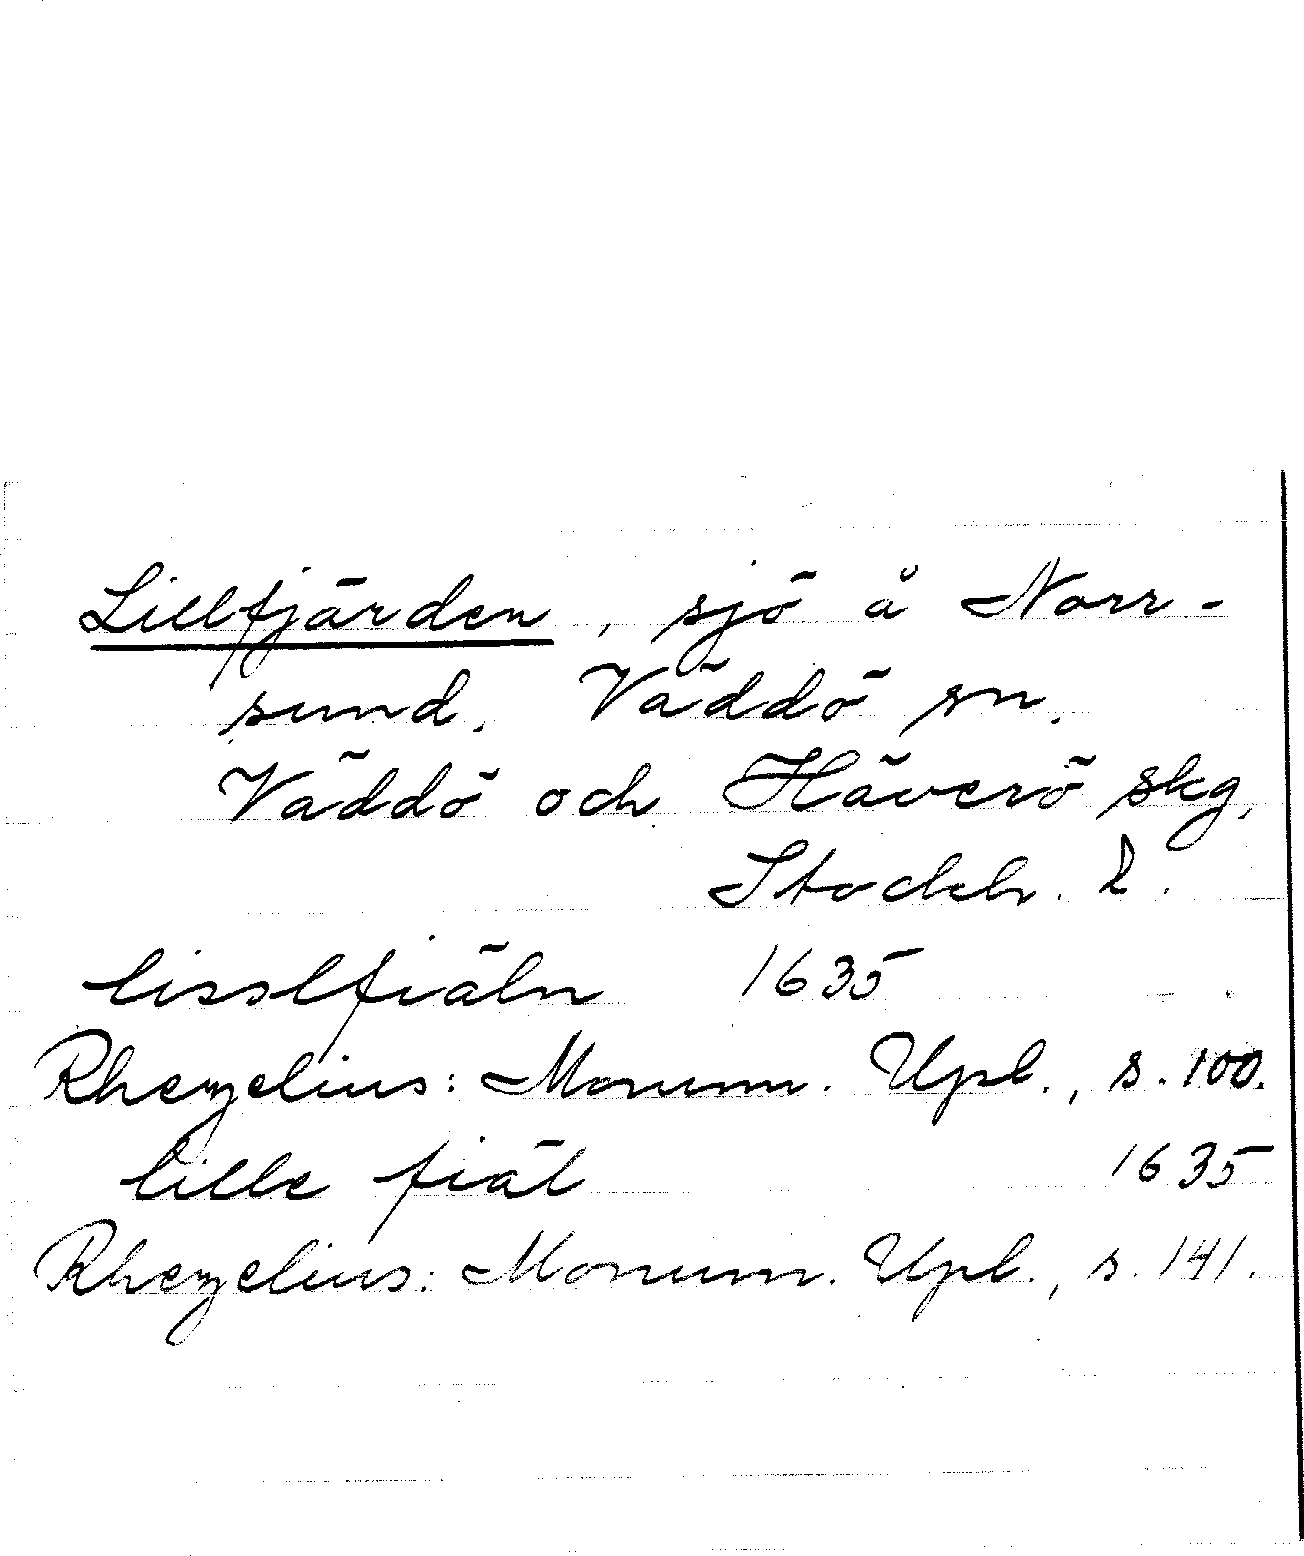 Lillfjärden, sjö å Norr-
sund. Väddö sn.
Väddö och Häverö skg,
Stockh. l.
lisslfiäln 1635
Rhezelius: Monum. Upl., s. 100.
lille fiäl 1635
Rhezelius: Monum. Upl., s. 141.